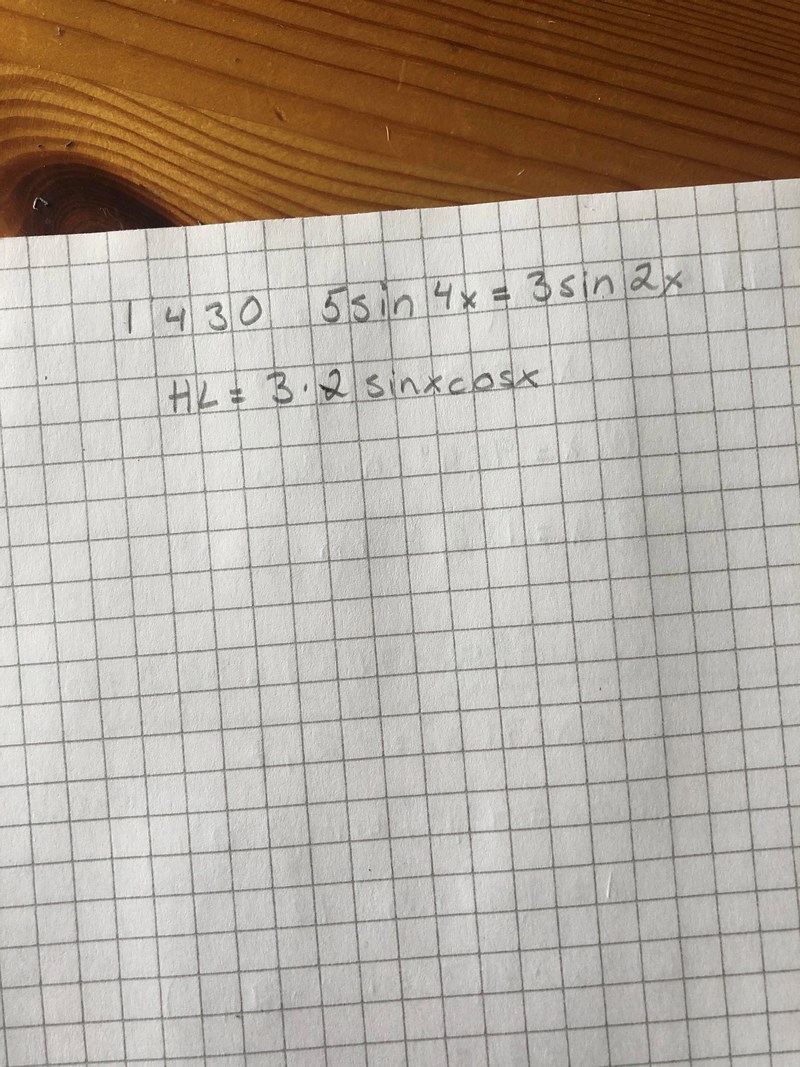 1430 5sin4x = 3sin2x
HL = 3·2 sinxcosx